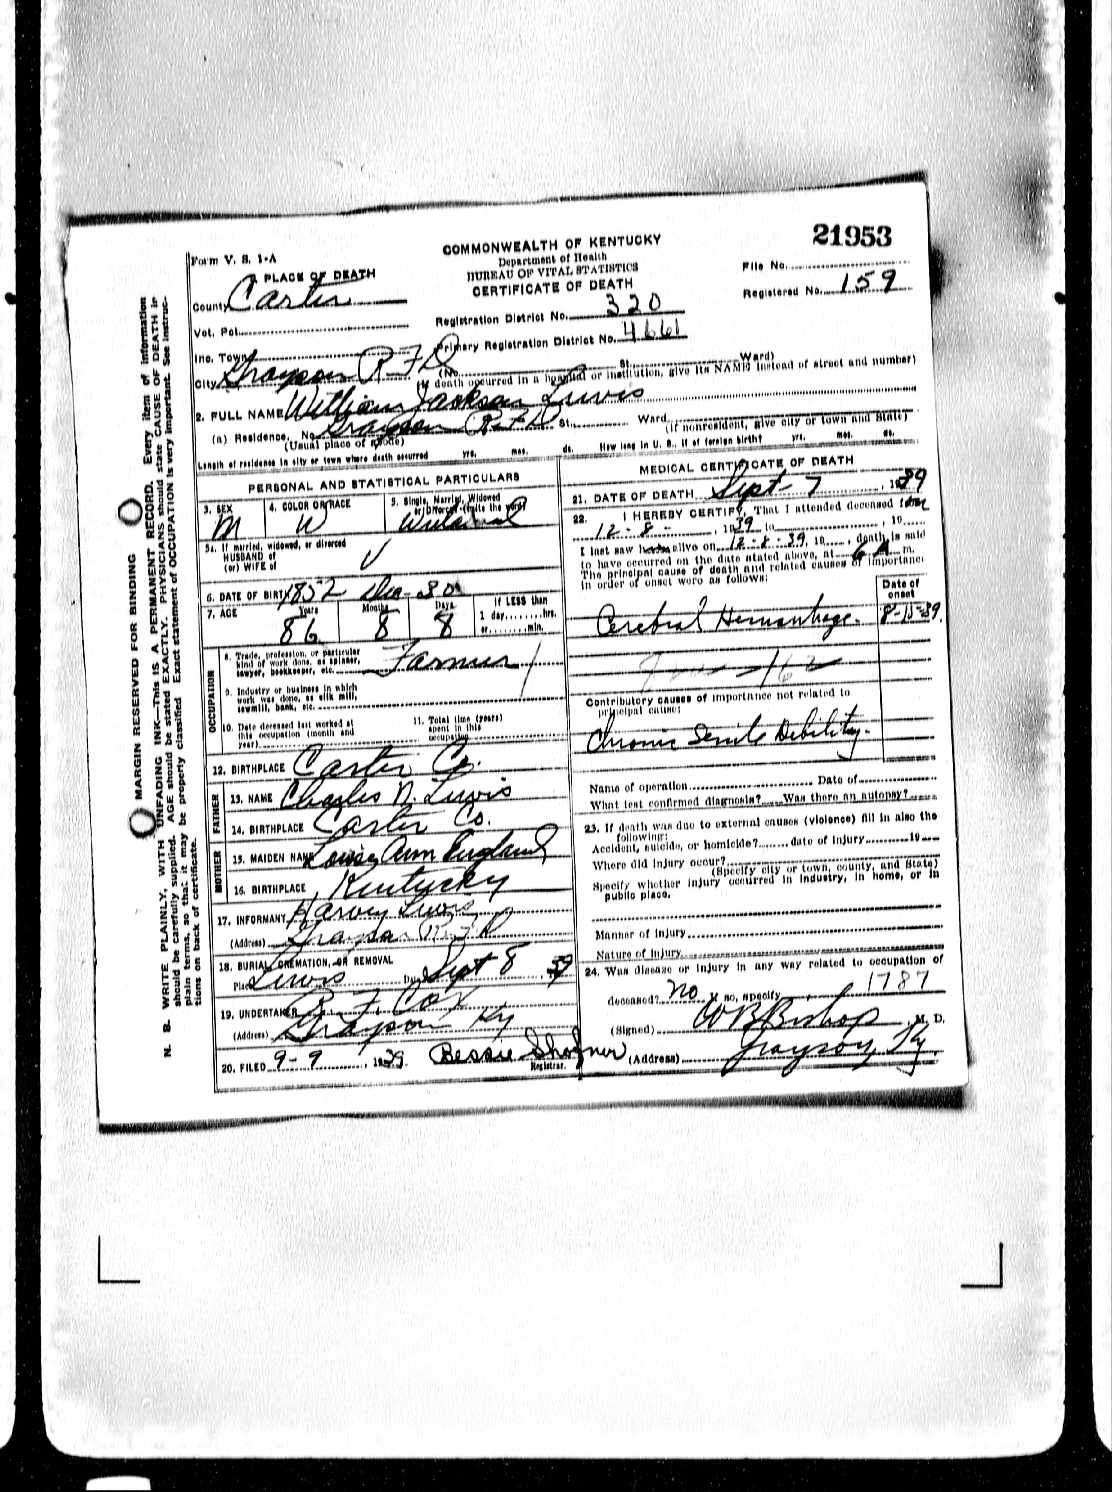 21953
Form V. S. 1-A
COMMONWEALTH OF KENTUCKY
Department of Health
BUREAU OF VITAL STATISTICS
CERTIFICATE OF DEATH
File No.
Registered No. 159
1. PLACE OF DEATH
County Carter
Vot. Pct.
Registration District No. 320
Inc. Town
Primary Registration District No. 4661
City Grayson R F D (No. St. Ward)
(If death occurred in a hospital or institution, give its NAME instead of street and number)
2. FULL NAME William Jackson Lewis
(a) Residence, No. Grayson R.F.D St. Ward
(Usual place of abode) (If nonresident, give city or town and State)
Length of residence in city or town where death occurred yrs. mos. ds. How long in U. S. if of foreign birth? yrs. mos. ds.
PERSONAL AND STATISTICAL PARTICULARS
3. SEX M
4. COLOR OR RACE W
5. Single, Married, Widowed or Divorced (write the word)
5a. If married, widowed, or divorced
HUSBAND of
(or) WIFE of
6. DATE OF BIRTH 1852 Dec-30
7. AGE Years 86 Months 8 Days 8 If LESS than 1 day hrs. or min.
OCCUPATION
8. Trade, profession, or particular kind of work done, as spinner, sawyer, bookkeeper, etc. Farmer
9. Industry or business in which work was done, as silk mill, sawmill, bank, etc.
10. Date deceased last worked at this occupation (month and year)
11. Total time (years) spent in this occupation
12. BIRTHPLACE Carter Co.
FATHER
13. NAME Charles N. Lewis
14. BIRTHPLACE Carter Co.
MOTHER
15. MAIDEN NAME Ann England
16. BIRTHPLACE Kentucky
17. INFORMANT Harvey Lewis
(Address) Grayson R F D
18. BURIAL, CREMATION, OR REMOVAL
Place Lewis Date Sept 8, 39
19. UNDERTAKER R. F. Cox
(Address) Grayson Ky
20. FILED 9-9, 1939. Bessie Registrar.
MEDICAL CERTIFICATE OF DEATH
21. DATE OF DEATH Sept-7, 1939
22. I HEREBY CERTIFY, That I attended deceased from
12-8-, 1939 to , 19
I last saw h alive on 12-8-39, 19 , death is said
to have occurred on the date stated above, at 6 A m.
The principal cause of death and related causes of importance
in order of onset were as follows:
Date of onset
Cerebral Hemorrhage. 8-15-39
Contributory causes of importance not related to
principal cause:
Chronic Senile Debility.
Name of operation Date of
What test confirmed diagnosis? Was there an autopsy?
23. If death was due to external causes (violence) fill in also the
following:
Accident, suicide, or homicide? date of injury 19
Where did injury occur?
(Specify city or town, county, and State)
Specify whether injury occurred in industry, in home, or in
public place.
Manner of injury
Nature of injury
24. Was disease or injury in any way related to occupation of
1787
deceased? no If so, specify
(Signed) W B Bishop, M. D.
(Address) Grayson, Ky.
MARGIN RESERVED FOR BINDING
N. B. WRITE PLAINLY, WITH UNFADING INK—THIS IS A PERMANENT RECORD. Every item of information
should be carefully supplied. AGE should be stated EXACTLY. PHYSICIANS should state CAUSE OF DEATH in
plain terms, so that it may be properly classified. Exact statement of OCCUPATION is very important. See instruc-
tions on back of certificate.